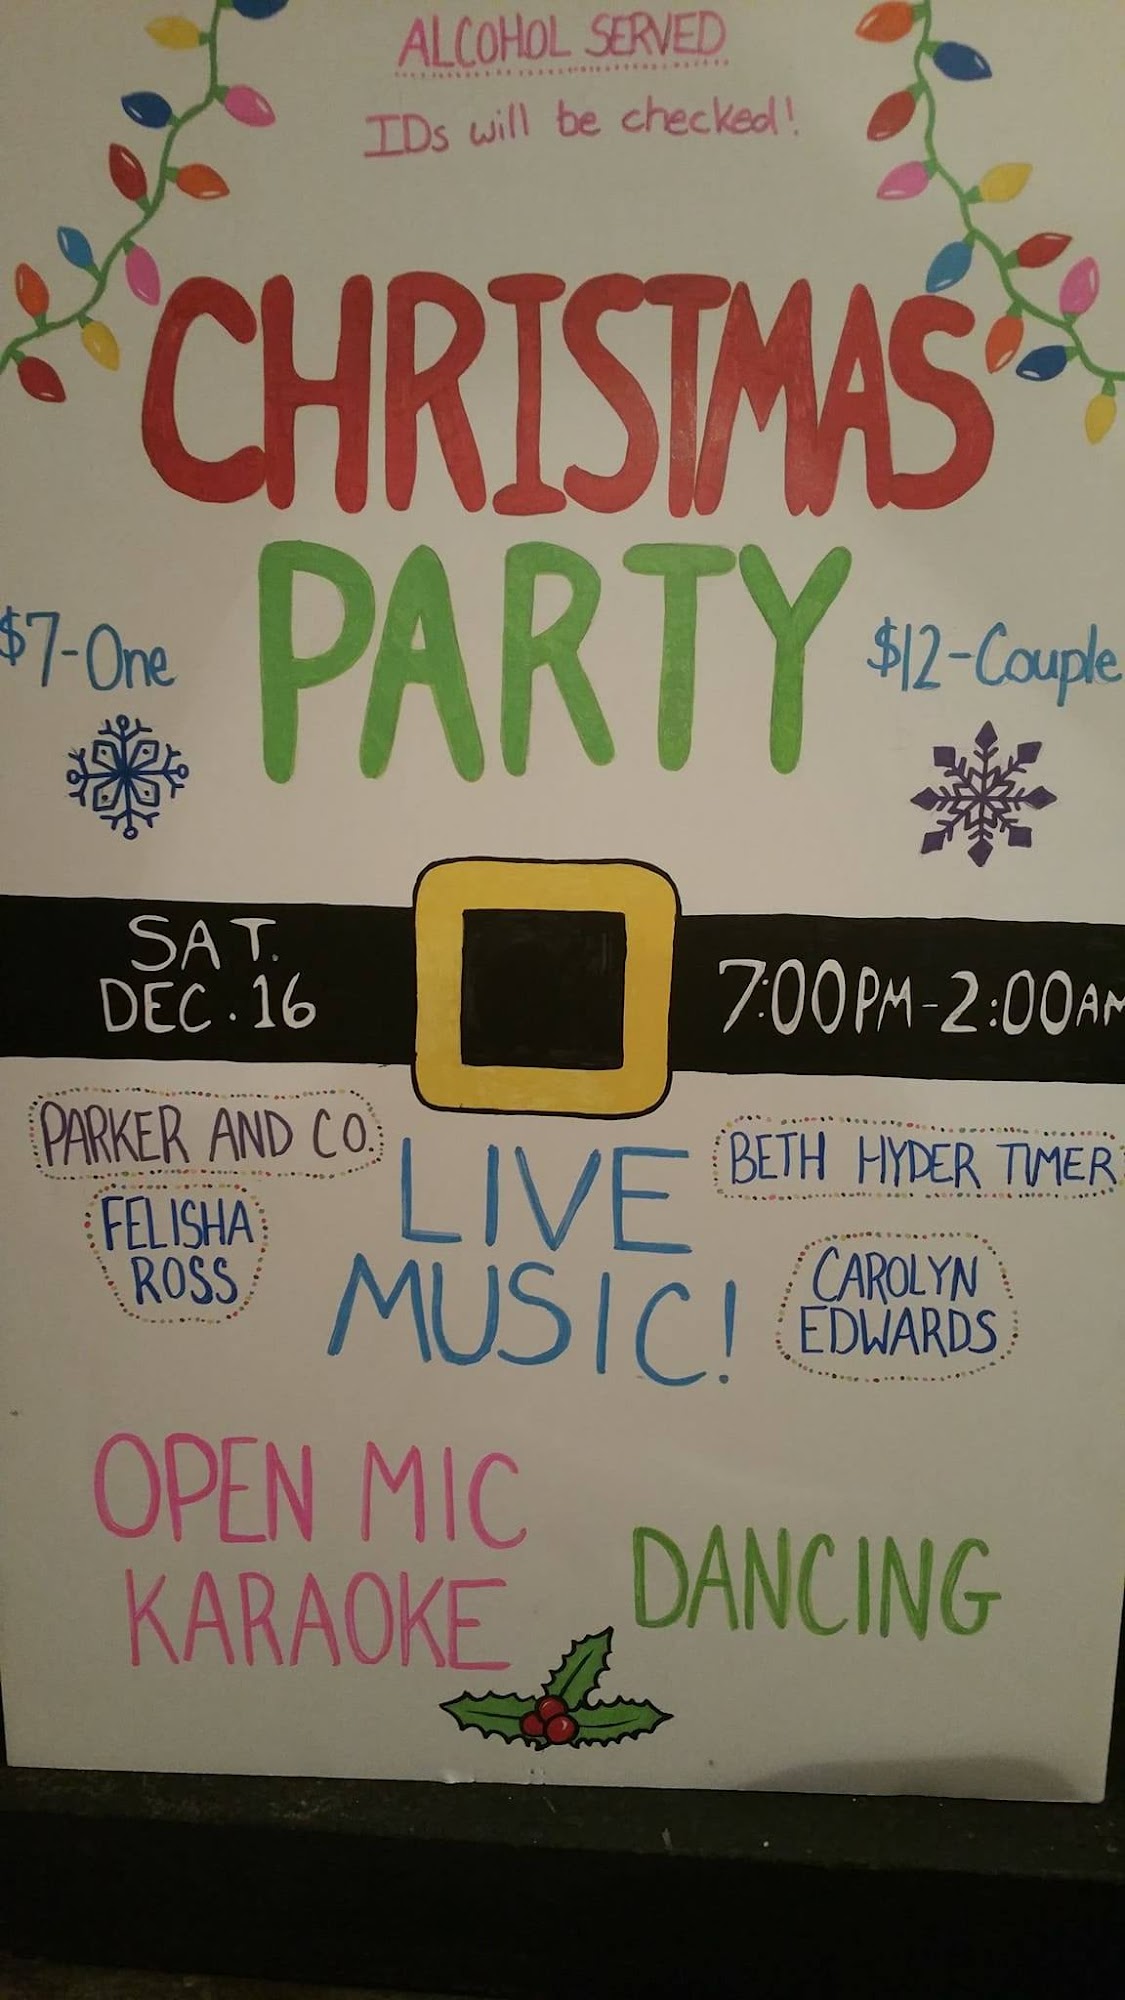 ALCOHOL SERVED
IDs will be checked!
CHRISTMAS
PARTY
$7-One
$12-Couple
SAT.
DEC. 16
7:00PM-2:00AM
PARKER AND CO.
FELISHA
ROSS
LIVE
MUSIC!
BETH HYDER TIMER
CAROLYN
EDWARDS
OPEN MIC
KARAOKE
DANCING